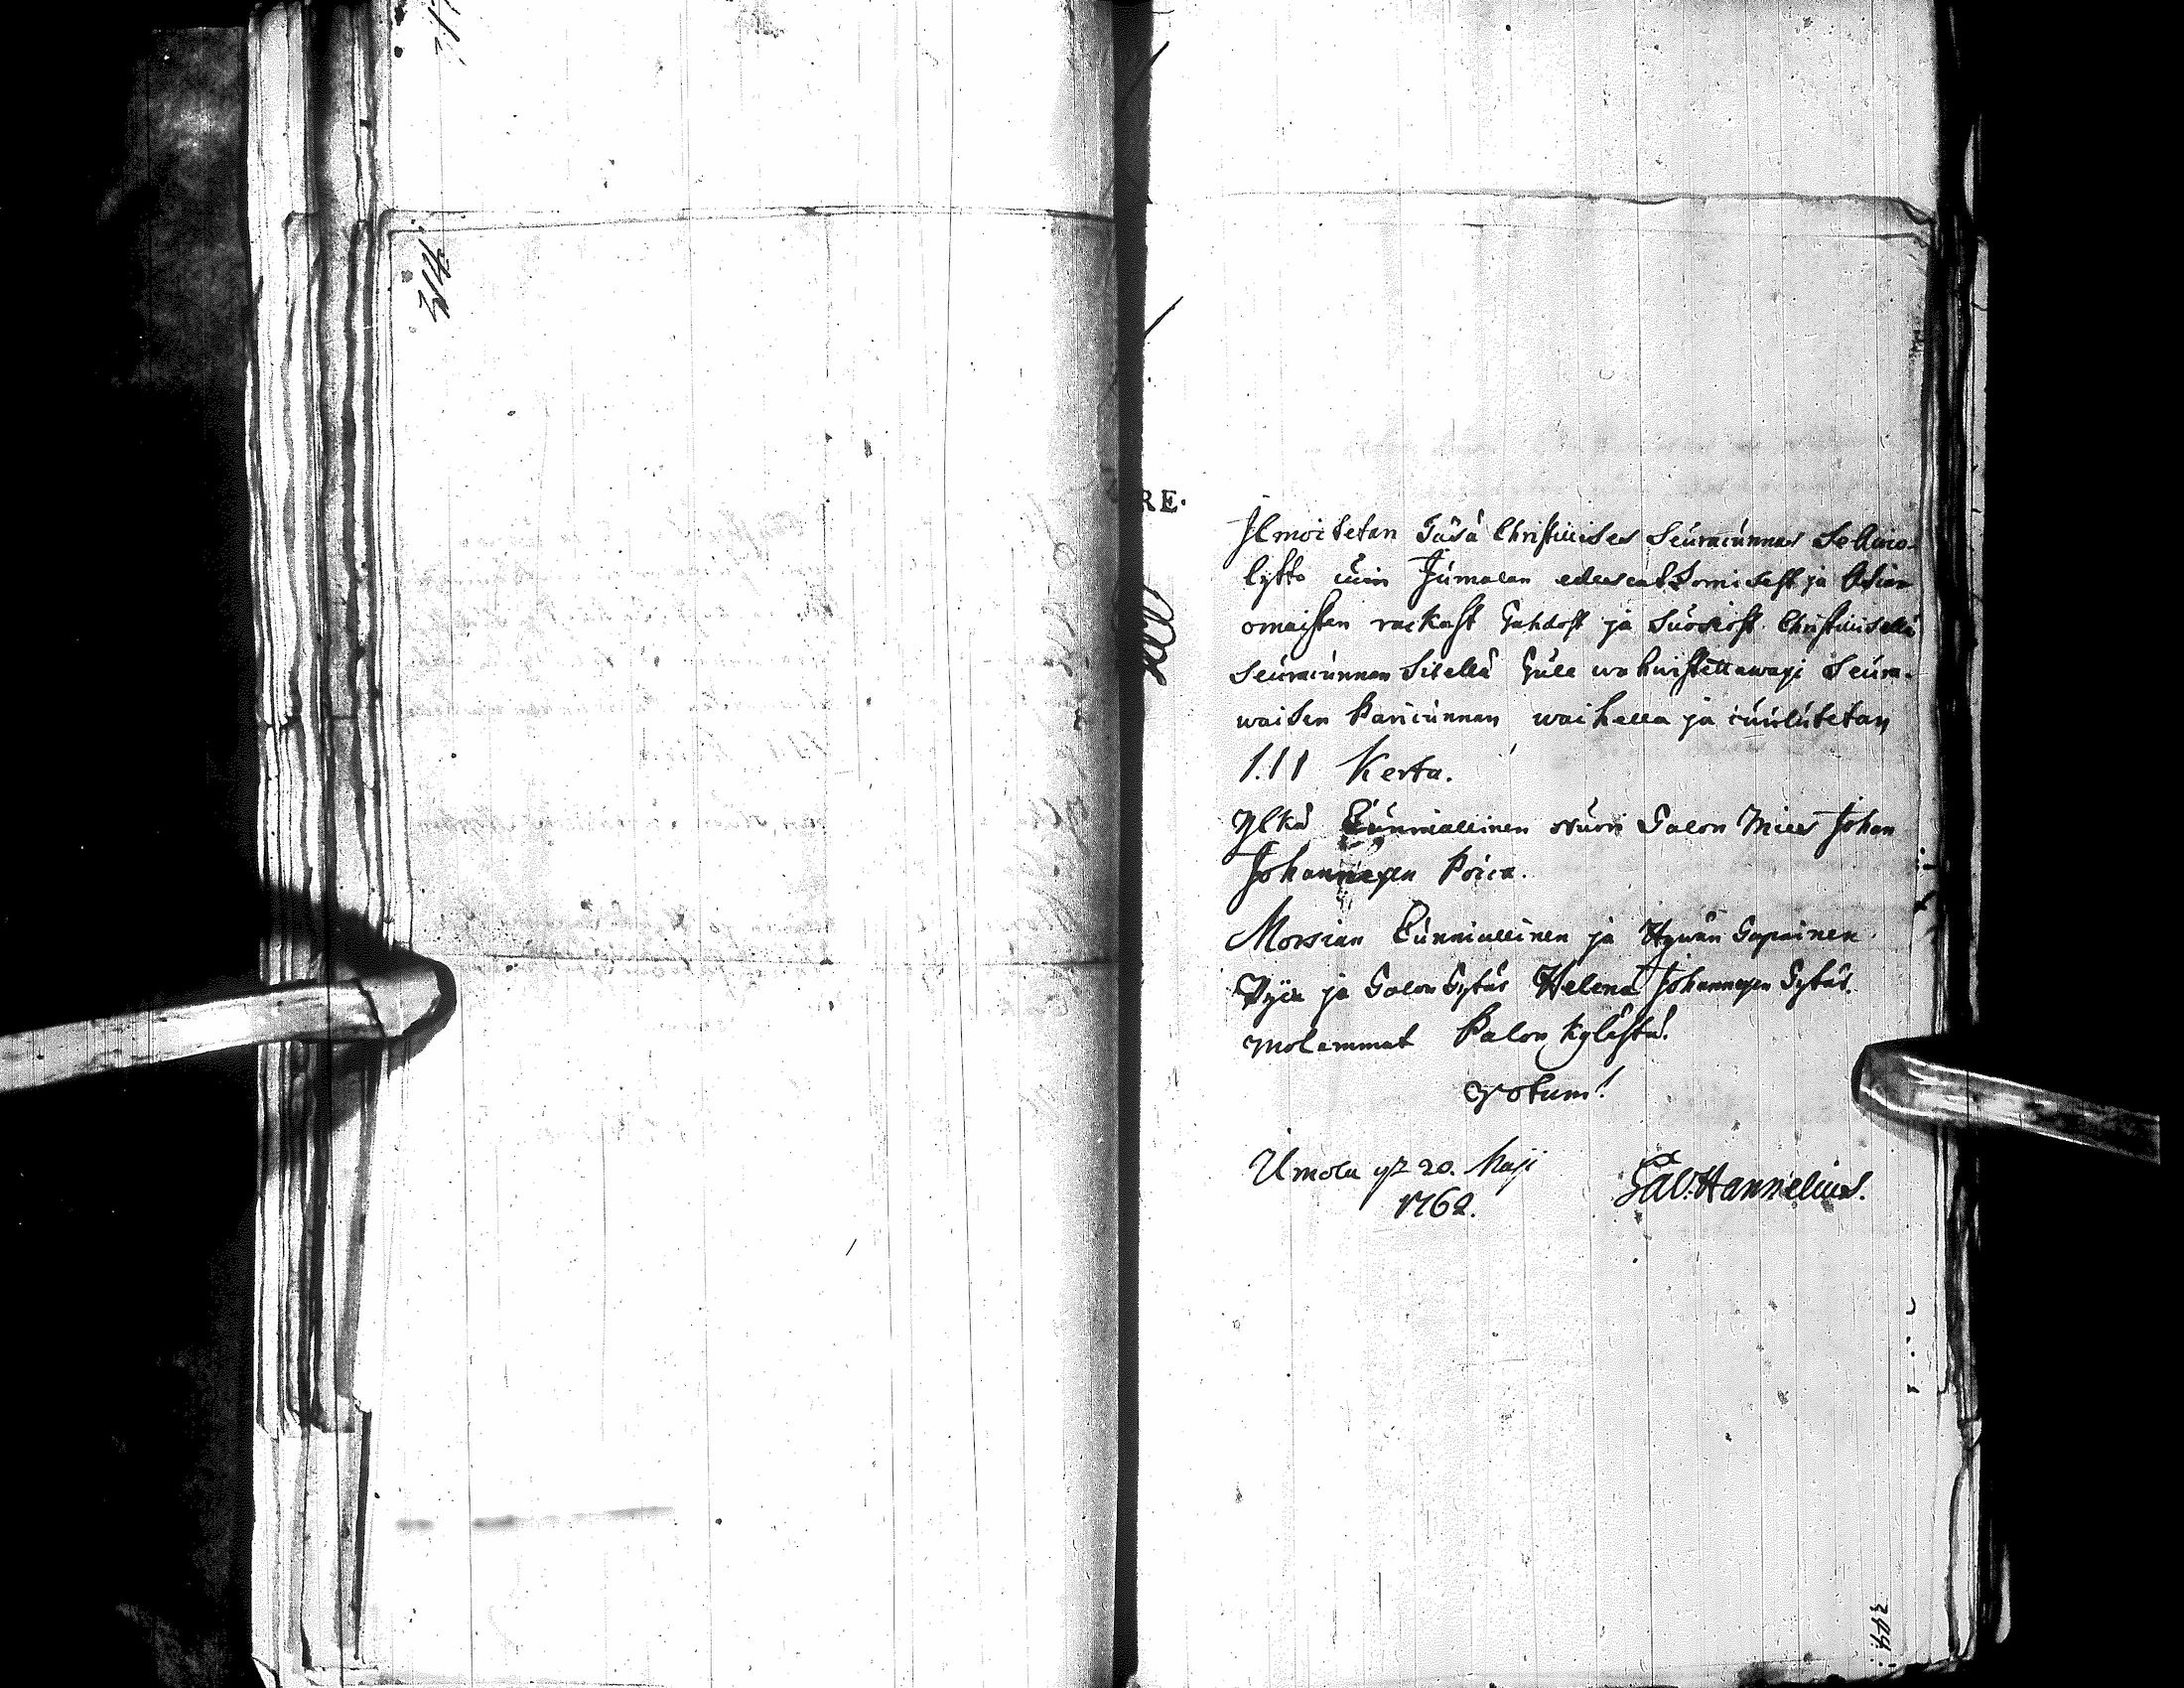 214
RE.
Ilmoitetan Täsä Christillises Seuracunnas se Awio-
lytto cuin Jumalan edescatzomisest ja Asian
omaisten rackast Tahdost ja Suosiost Christillisellä
seuracunnan Sitellä Tule wahwistettawaxi Seura-
waisen Pariscunnan waihella ja cuulutetan
1.11 Kerta.
Ylkä Cunniallinen nuori Talon Mies Johan
Johannexen Poica.
Morsian Cunniallinen ja Hywän Tapainen
Pijca ja Talon Tytär Helena Johannexen Tytär.
molemmat Palon kylästä.
Votum!
Umola 20. Maji
1762.
Hannelius.